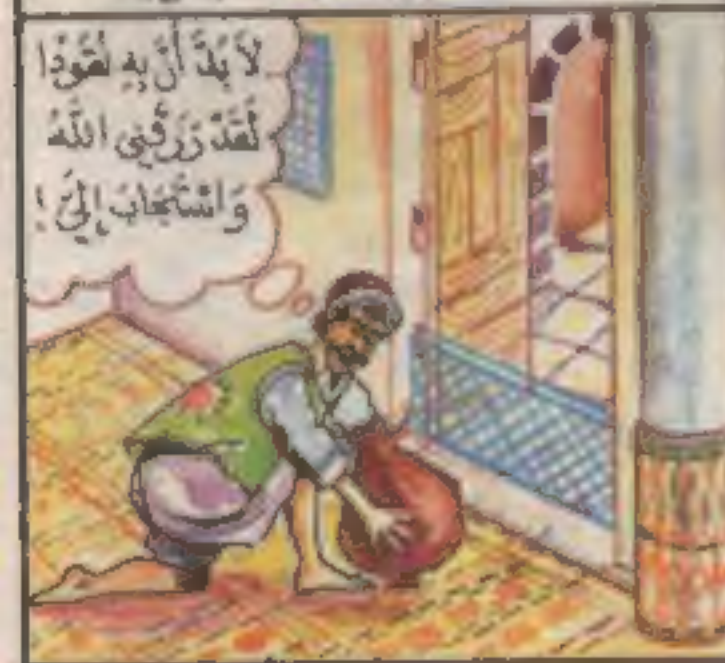 لاَ بُدَّ أَنَّ بِهِ نُقُودًا
لَقَدْ رَزَقَنِي اللَّهُ
وَاسْتَجَابَ إِلَيَّ !